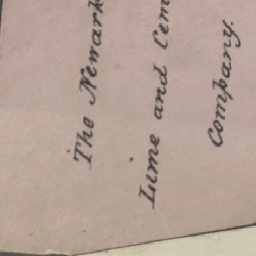 The Newark
Lime and Cem
Company.